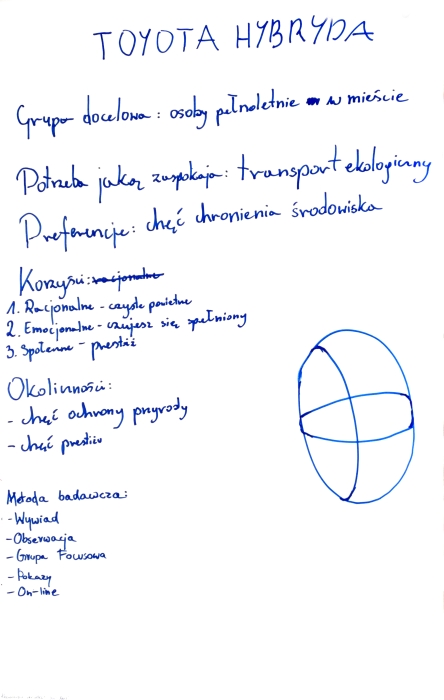 TOYOTA HYBRYDA
Grupa docelowa: osoby pełnoletnie w mieście
Potrzeba jaką zaspokaja: transport ekologiczny
Preferencje: chęć chronienia środowiska
Korzyści: racjonalne
1. Racjonalne - czyste powietrze
2. Emocjonalne - czujesz się spełniony
3. Społeczne - prestiż
Okoliczności:
- chęć ochrony przyrody
- chęć prestiżu
Metoda badawcza:
- Wywiad
- Obserwacja
- Grupa Fokusowa
- Pokazy
- On-line